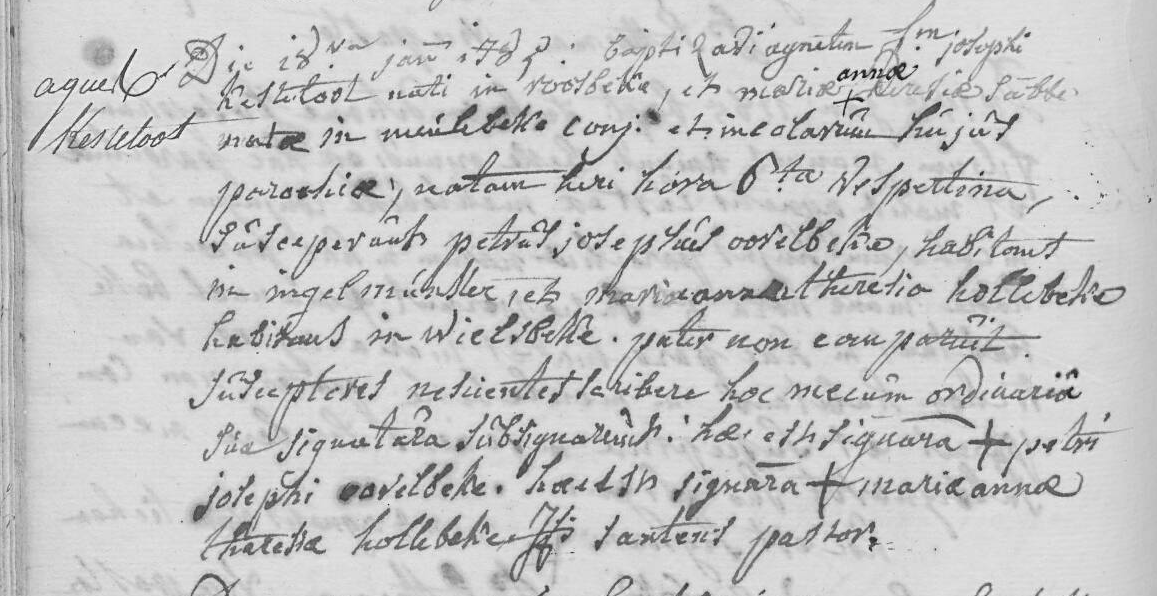 agnes Kesteloot
Die 18va jan 178. baptizavi agnetem fam josephi
Kesteloot nati in roosbeke, et mariæ annæ theresiæ Sabbe
natæ in meulebeke conj. et incolarum hujus
parochiæ, natam heri hora 6ta vespertina,
susceperunt petrus josephus ooselbeke, habitans
in ingelmunster, et maria anna theresia hollebeke
habitans in Wielsbeke. pater non comparuit
susceptores nescientes scribere hoc mecum ordinaria
sua signatura subsignarunt. hæc est signura + petri
josephi ooselbeke. hæc est signura + mariæ annæ
theresiæ hollebeke. santens pastor.